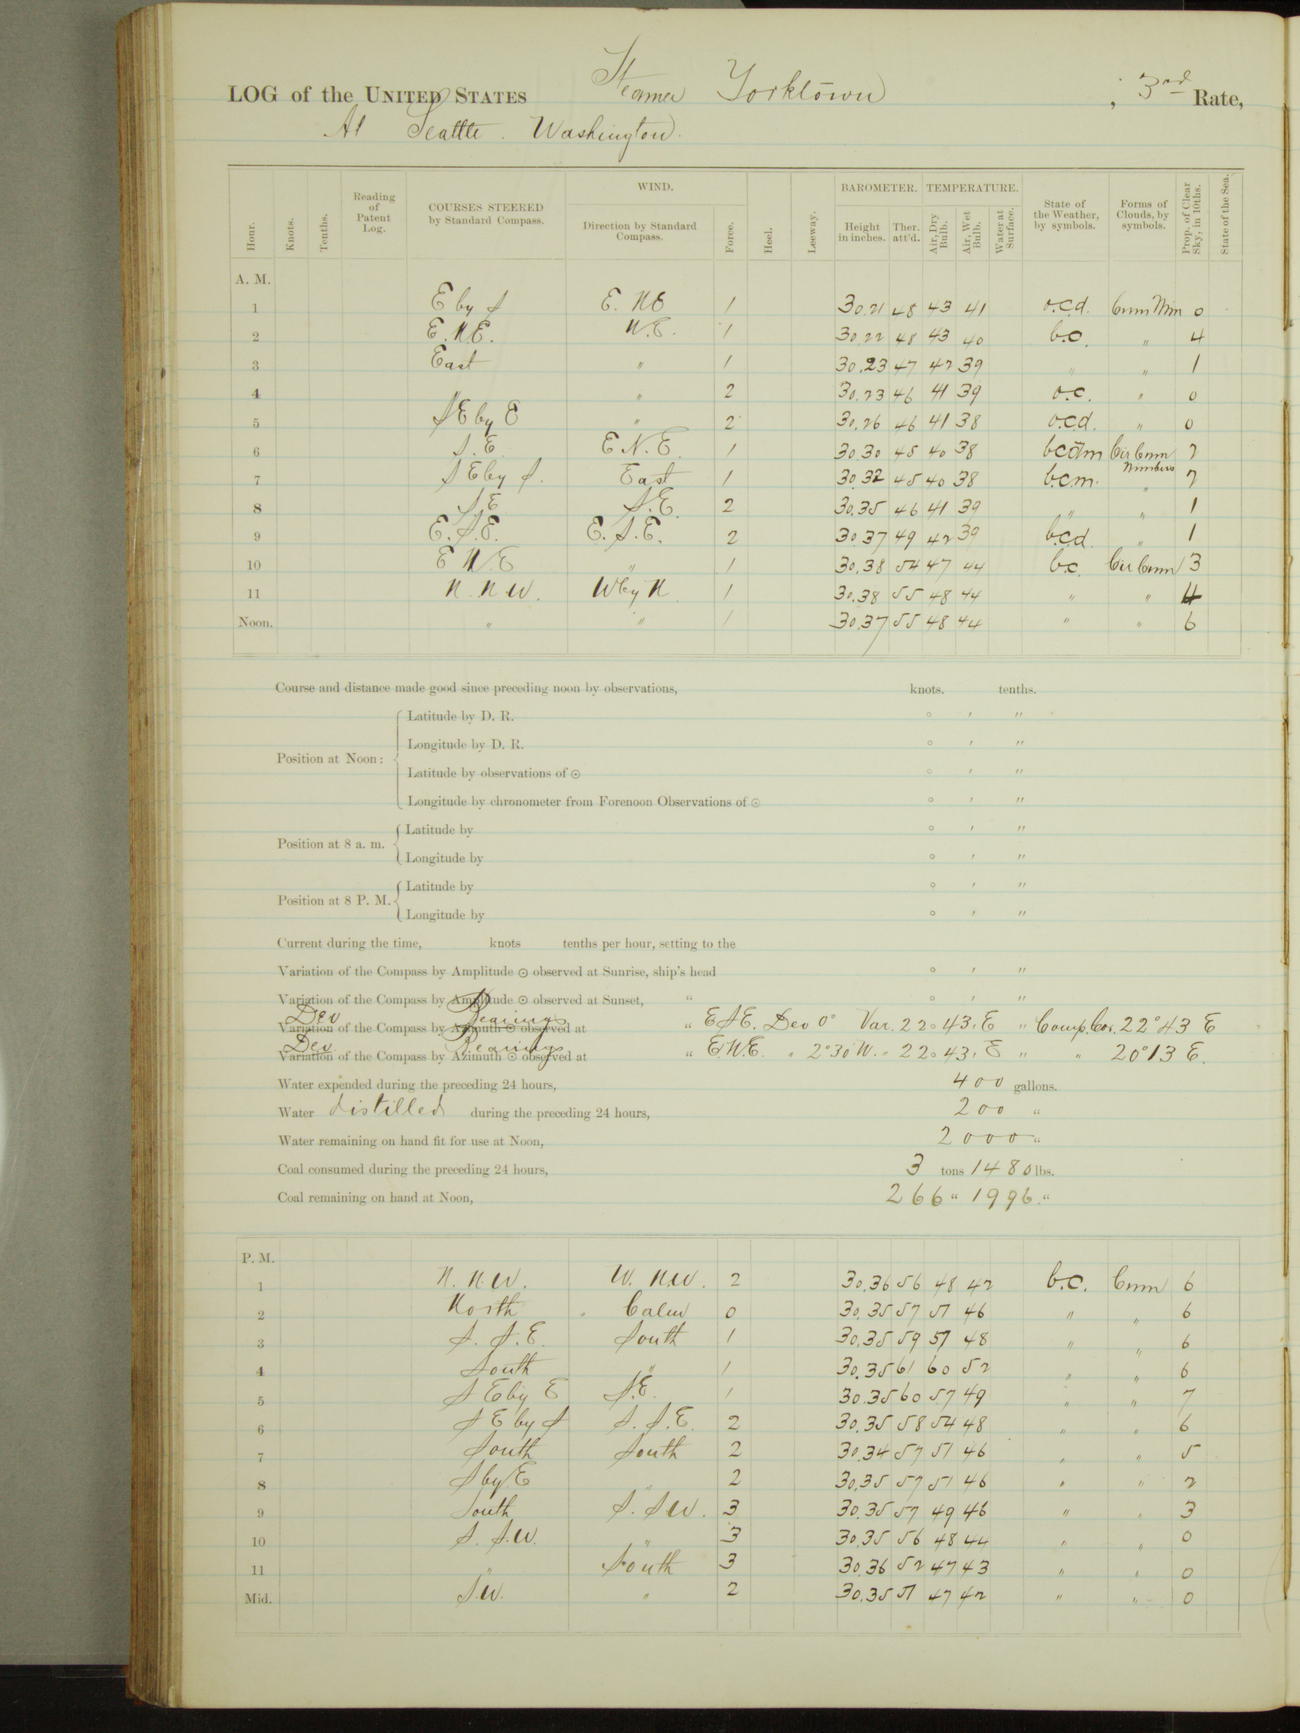 LOG of the UNITED STATES Steamer Yorktown, 3rd Rate,
At Seattle. Washington.
Hour. Knots. Tenths. Reading of Patent Log. COURSES STEERED by Standard Compass. WIND. Direction by Standard Compass. Force. Heel. Leeway. BAROMETER. Height in inches. Ther. att'd. TEMPERATURE. Air, Dry Bulb. Air, Wet Bulb. Water at Surface. State of the Weather, by symbols. Forms of Clouds, by symbols. Prop. of Clear Sky, in 10ths. State of the Sea.
A. M.
1 E by S E. NE 1 30.21 48 43 41 o.c.d. Cum Nim 0
2 E.N.E. N.E. 1 30.22 48 43 40 b.c. " 4
3 East " 1 30.23 47 42 39 " " 1
4 " 2 30.23 46 41 39 o.c. " 0
5 SE by E " 2 30.26 46 41 38 o.c.d. " 0
6 S.E. E N.E. 1 30.30 45 40 38 bcdm Cir Cum Nimbus 2
7 SE by S. East 1 30.32 45 40 38 b.c.m. " 2
8 SE S.E. 2 30.35 46 41 39 " " 1
9 E.S.E. E.S.E. 2 30.37 49 42 39 b.c.d. " 1
10 E N.E " 1 30.38 54 47 44 b.c. Cir Cum 3
11 N. N W. W by N. 1 30.38 55 48 44 " " 4
Noon. " " 1 30.37 55 48 44 " " 6
Course and distance made good since preceding noon by observations, knots. tenths.
Position at Noon: Latitude by D. R. ° ′ ″
Longitude by D. R. ° ′ ″
Latitude by observations of ☉ ° ′ ″
Longitude by chronometer from Forenoon Observations of ☉ ° ′ ″
Position at 8 a. m. Latitude by ° ′ ″
Longitude by ° ′ ″
Position at 8 P. M. Latitude by ° ′ ″
Longitude by ° ′ ″
Current during the time, knots tenths per hour, setting to the
Variation of the Compass by Amplitude ☉ observed at Sunrise, ship's head ° ′ ″
Variation of the Compass by Amplitude ☉ observed at Sunset, " ° ′ ″
Dev Bearings
Variation of the Compass by Azimuth ☉ observed at " ESE. Dev 0° Var. 22° 43′ E " Comp. Cor. 22° 43 E
Dev Bearings
Variation of the Compass by Azimuth ☉ observed at " E.N.E. " 2° 30 W. " 22° 43′ E " " 20° 13 E.
Water expended during the preceding 24 hours, 400 gallons.
Water distilled during the preceding 24 hours, 200 "
Water remaining on hand fit for use at Noon, 2000 "
Coal consumed during the preceding 24 hours, 3 tons 1480 lbs.
Coal remaining on hand at Noon, 266 " 1996 "
P. M.
1 N. NW. W. NW. 2 30.36 56 48 42 b.c. Cum 6
2 North Calm 0 30.35 57 51 46 " " 6
3 S. S.E. South 1 30.35 59 51 48 " " 6
4 South " 1 30.35 61 60 52 " " 6
5 SE by E S.E. 1 30.35 60 57 49 " " 7
6 SE by S S. S.E. 2 30.35 58 54 48 " " 6
7 South South 2 30.34 57 51 46 " " 5
8 S by E " 2 30.35 57 51 46 " " 2
9 South S. SW. 3 30.35 57 49 46 " " 3
10 S. S.W. " 3 30.35 56 48 44 " " 0
11 " South 3 30.36 52 47 43 " " 0
Mid. S.W. " 2 30.35 51 47 42 " " 0